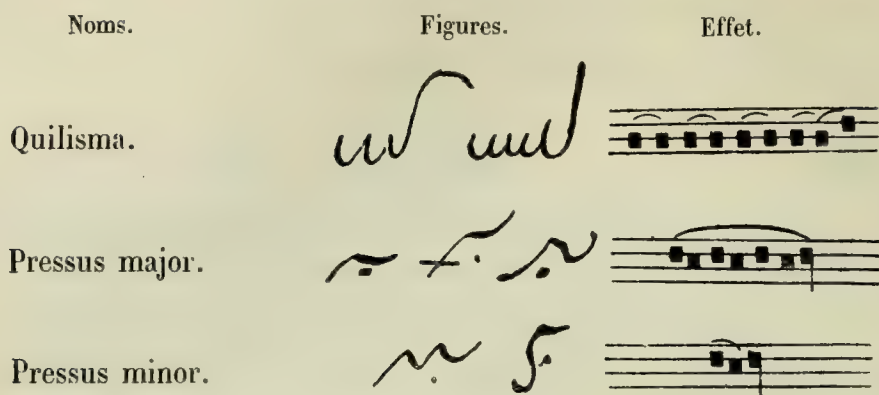 Noms. Figures. Effet.
Quilisma.
Pressus major.
Pressus minor.